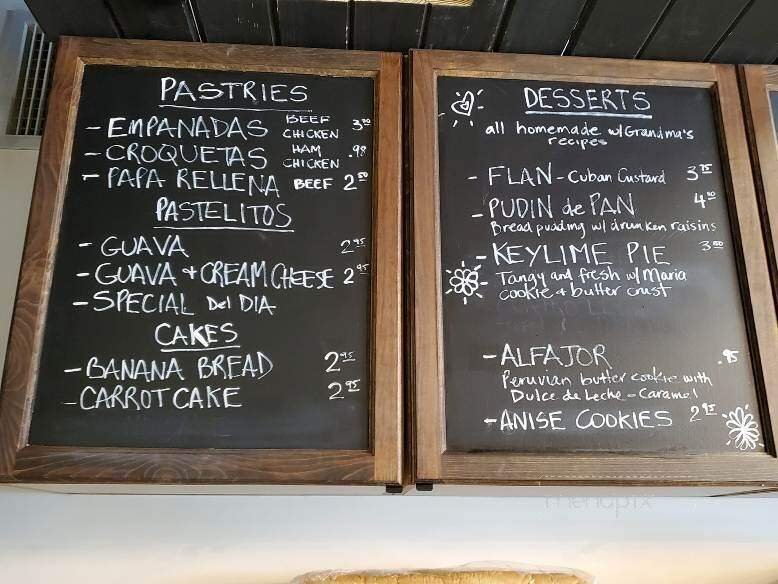 PASTRIES
- EMPANADAS BEEF CHICKEN
- CROQUETAS HAM CHICKEN .98
- PAPA RELLENA BEEF 2.50
PASTELITOS
- GUAVA 2.95
- GUAVA + CREAM CHEESE 2.95
- SPECIAL Del DIA
CAKES
- BANANA BREAD 2.95
- CARROT CAKE 2.95
DESSERTS
all homemade w/Grandma's
recipes
- FLAN - Cuban Custard 3.75
- PUDIN de PAN 4.50
Bread pudding w/ drunken raisins
- KEYLIME PIE 3.50
Tangy and fresh w/ Maria
cookie + butter crust
- ALFAJOR .95
Peruvian butter cookie with
Dulce de Leche - Caramel
- ANISE COOKIES 2.95
menupix